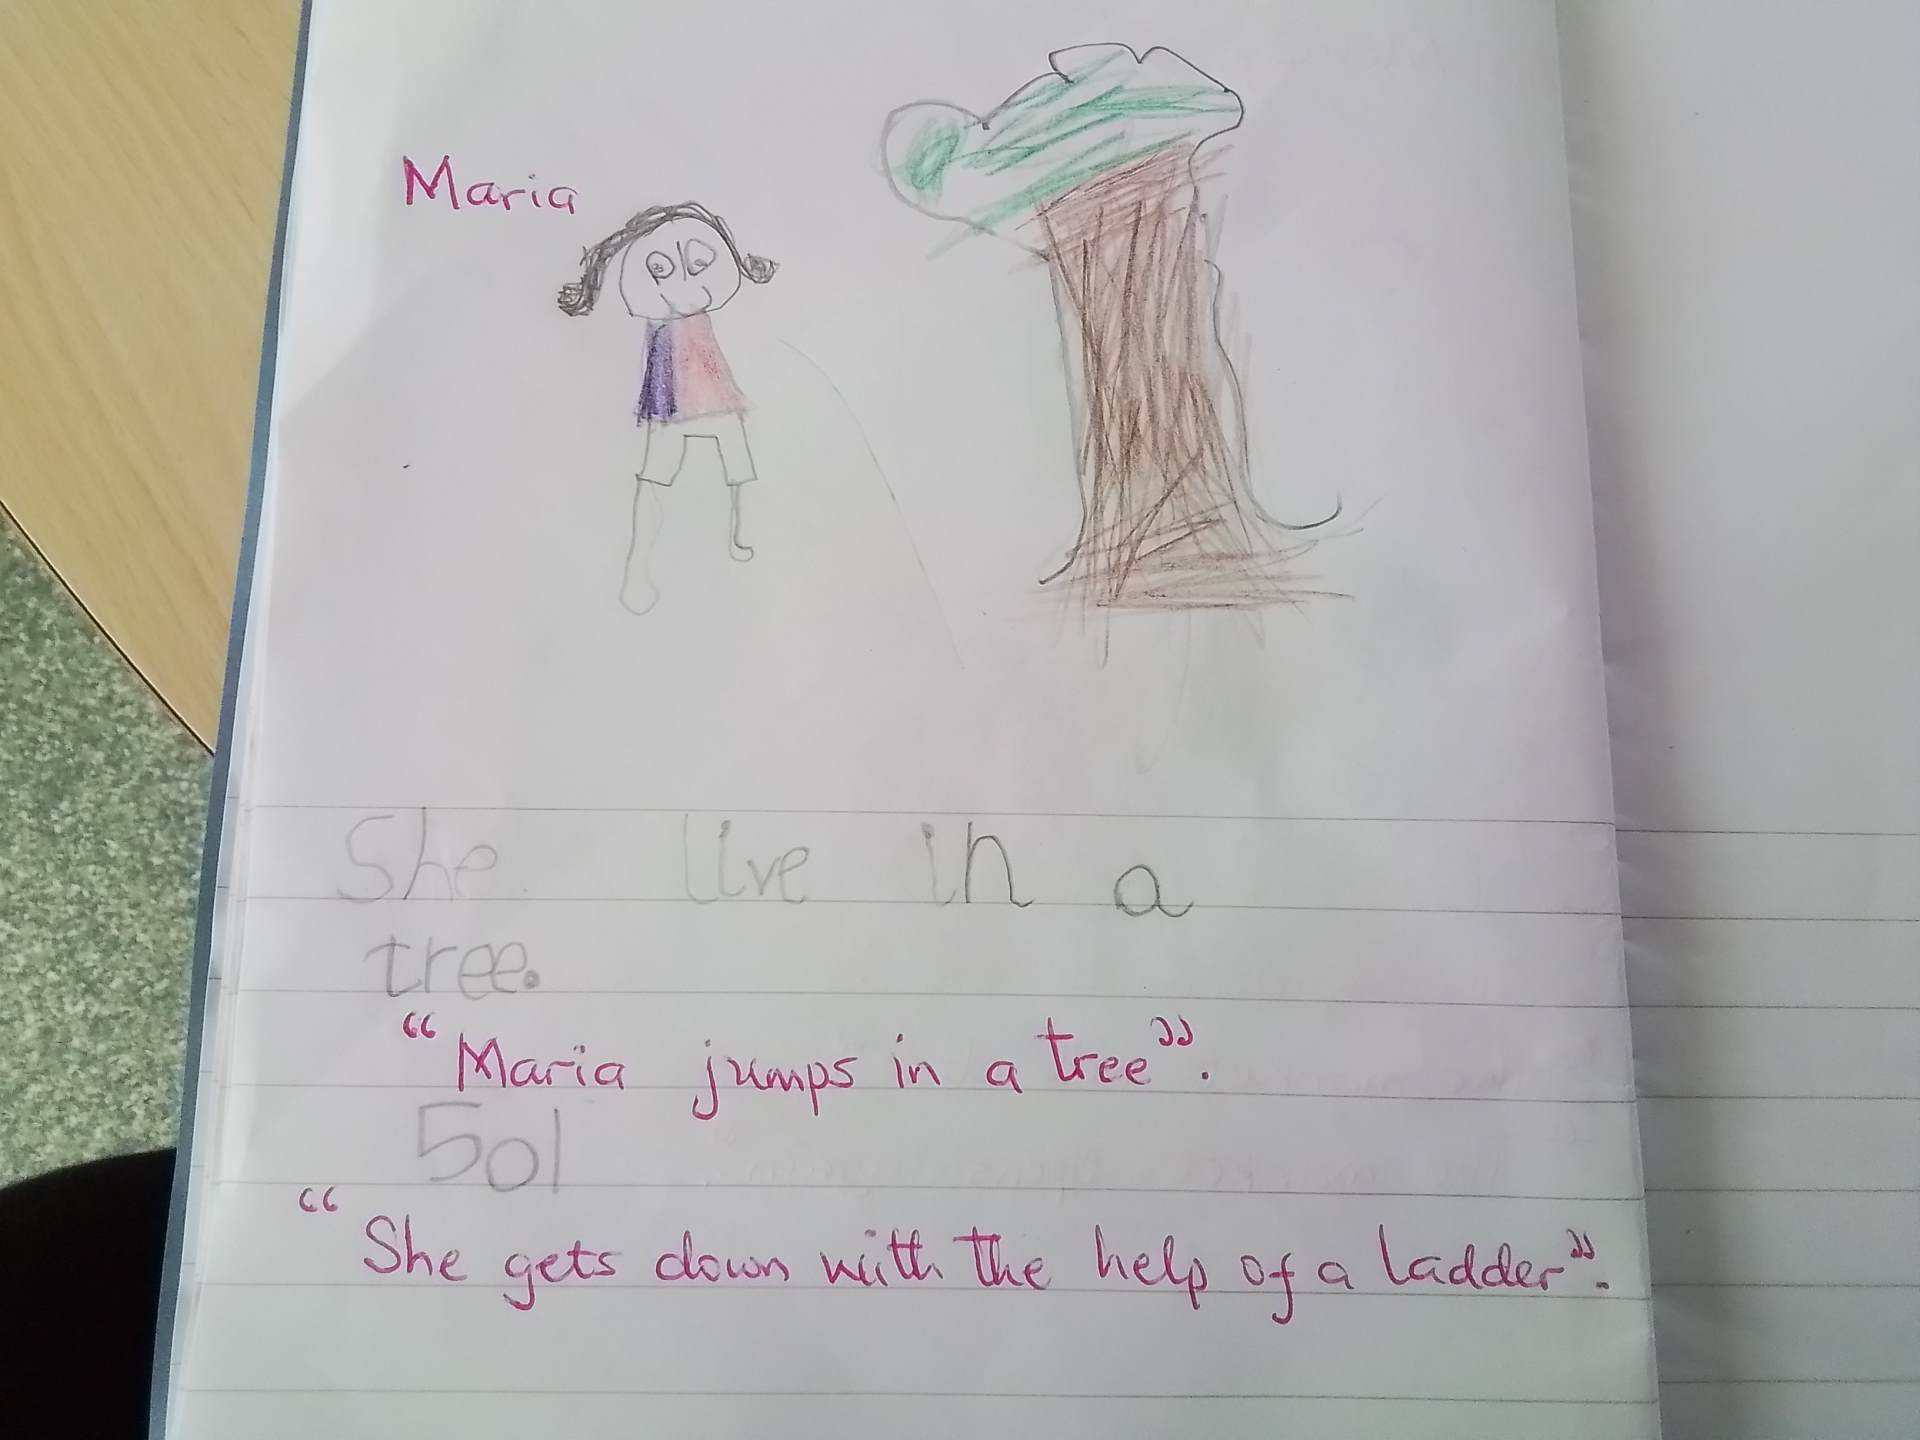 Maria
She live in a
tree.
“Maria jumps in a tree”.
Sol
“She gets down with the help of a ladder”.